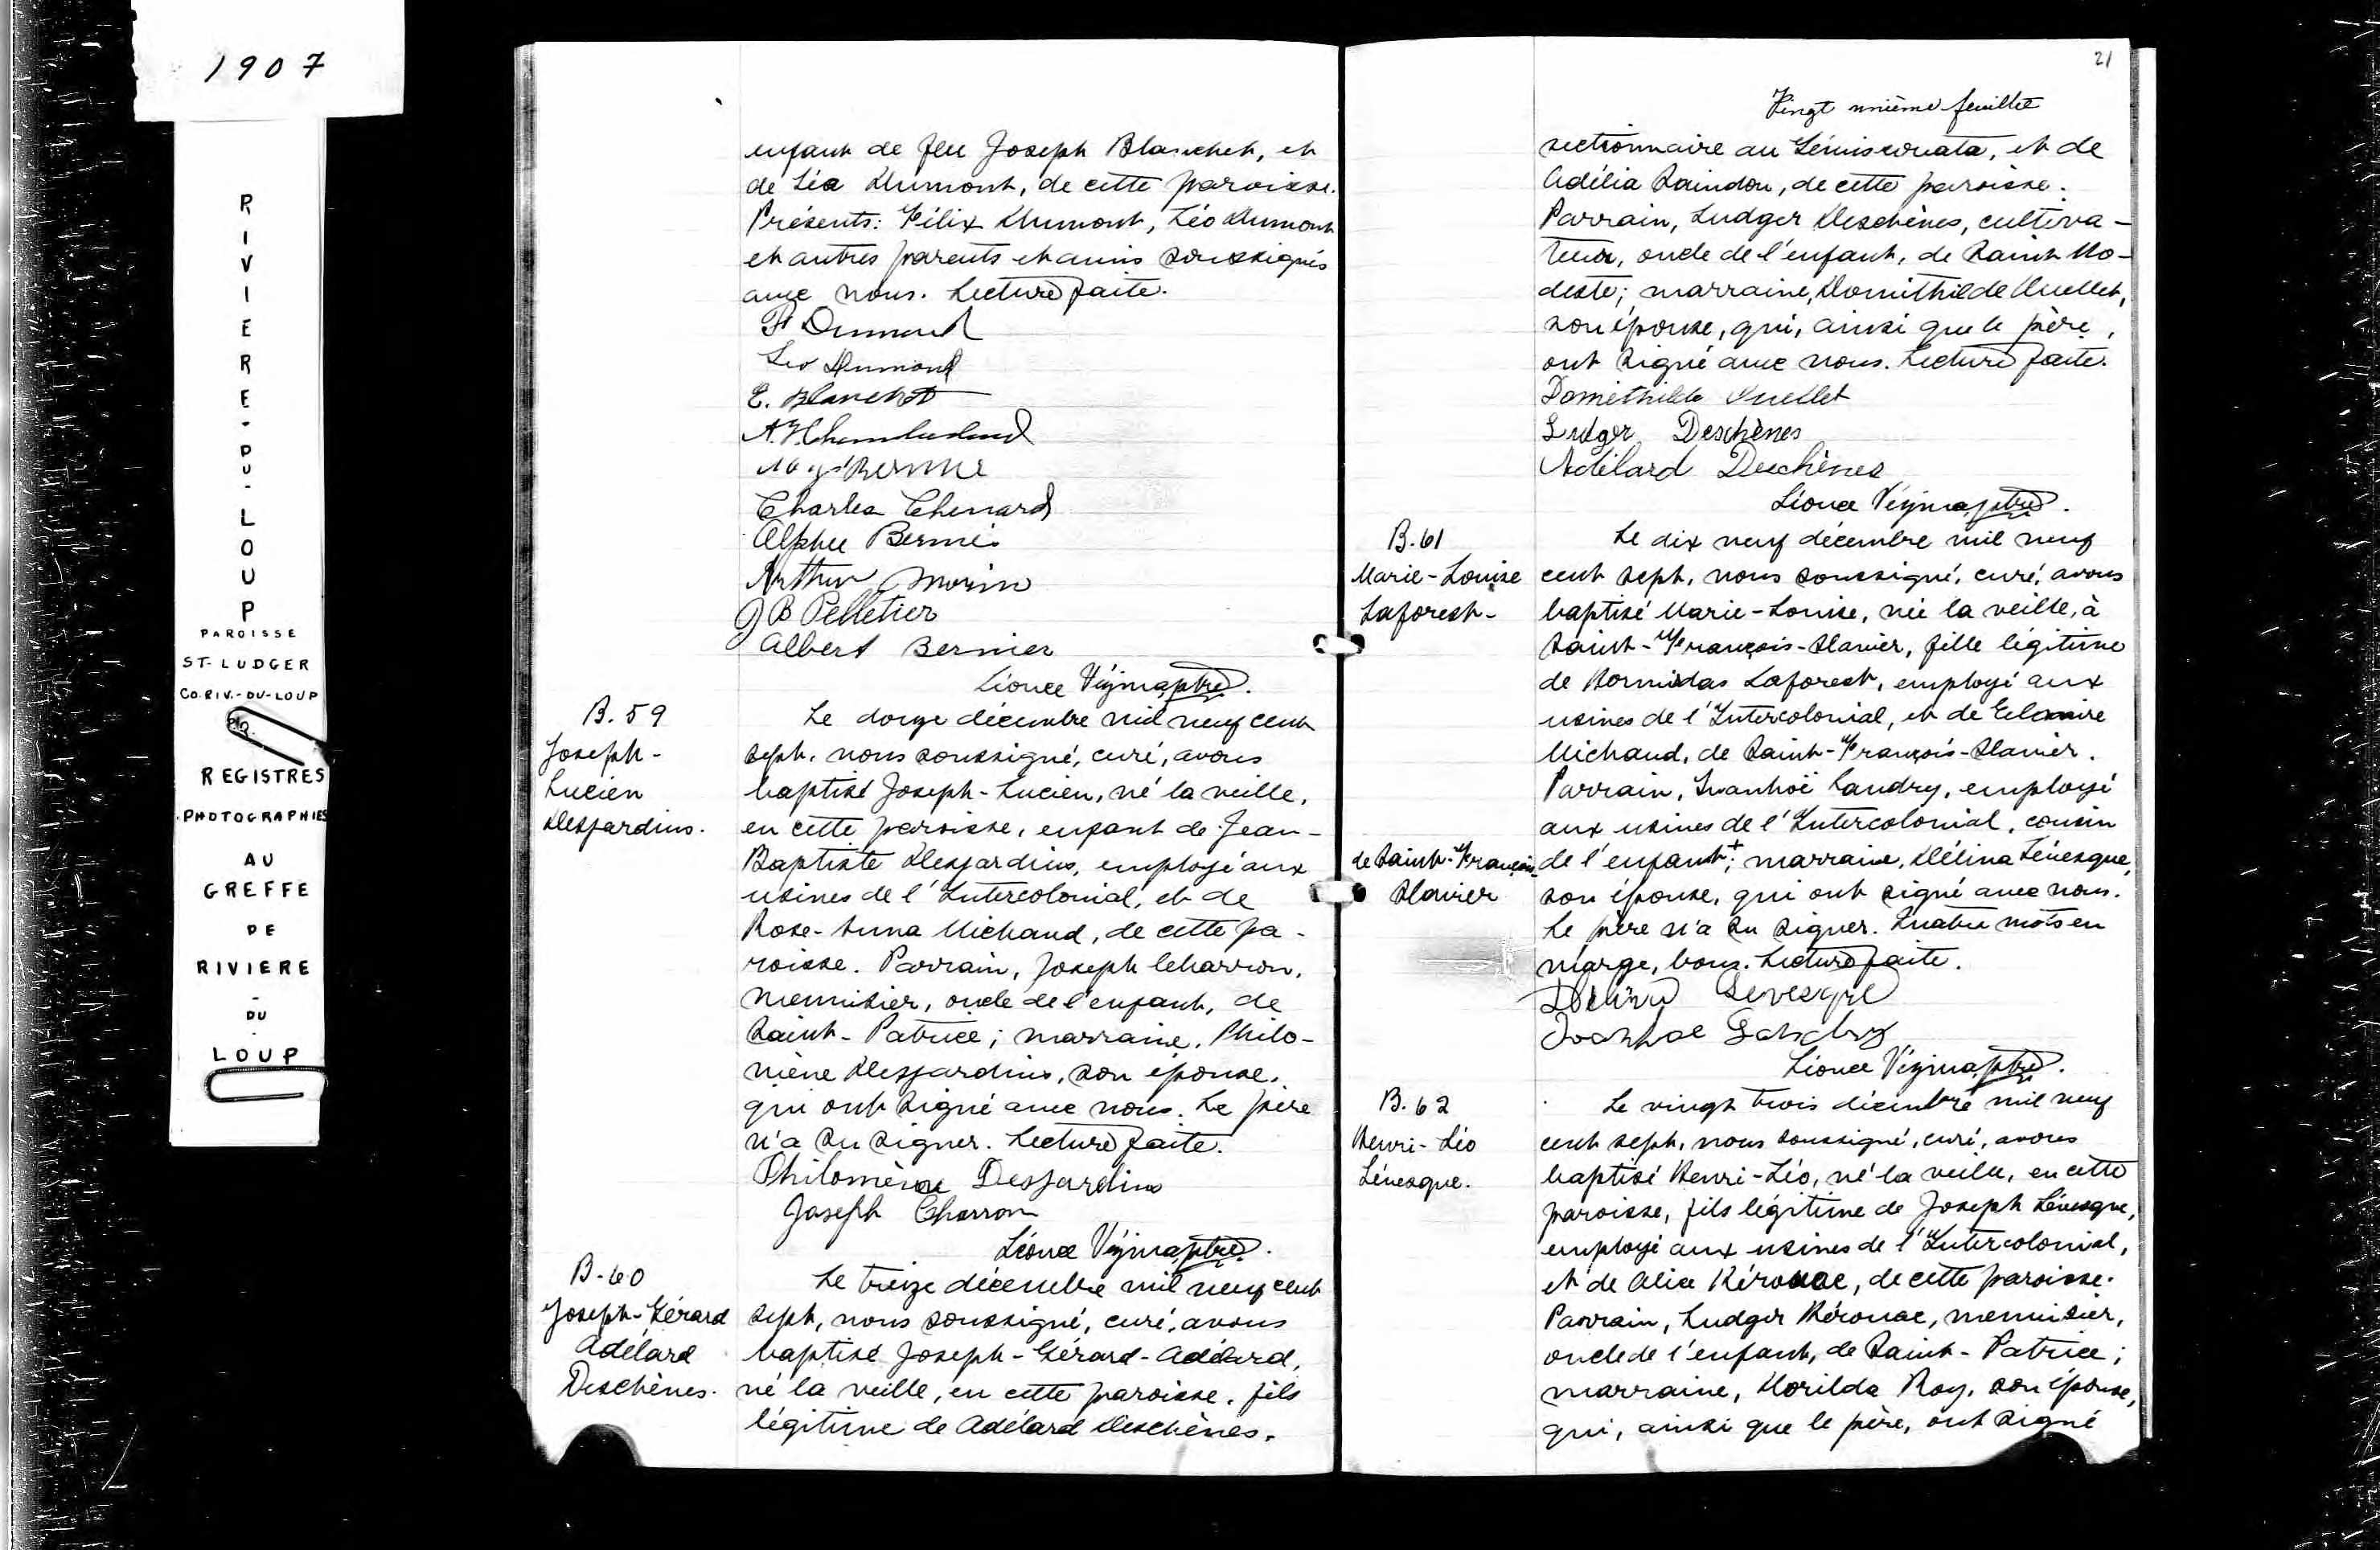 1907
RIVIERE-DU-LOUP
PAROISSE
ST-LUDGER
CO.RIV.-DU-LOUP
P.Q.
REGISTRES
PHOTOGRAPHIES
AU
GREFFE
DE
RIVIERE
-
DU
-
LOUP
enfant de feu Joseph Blanchet, et
de Léa Dumont, de cette paroisse.
Présents: Félix Dumont, Léo Dumont
et autres parents et amis soussignés
avec nous. Lecture faite.
F Dumond
Leo Dumond
E. Blanchet
Charles Chenard
Alphee Bernier
Arthur Morin
J B Pelletier
Albert Bernier
Léonce Vézina, ptre.
B.59
Joseph-
Lucien
Desjardins.
Le douze décembre mil neuf cent
sept, nous soussigné, curé, avons
baptisé Joseph-Lucien, né la veille,
en cette paroisse, enfant de Jean-
Baptiste Desjardins, employé aux
usines de l'Intercolonial, et de
Rose-Anna Michaud, de cette pa-
roisse. Parrain, Joseph Charron,
menuisier, oncle de l'enfant, de
Saint-Patrice; marraine, Philo-
mène Desjardins, son épouse,
qui ont signé avec nous. Le père
n'a su signer. Lecture faite.
Philomène Desjardins
Joseph Charron
Léonce Vézina, ptre.
B-60
Joseph-Gérard
Adélard
Deschènes.
Le treize décembre mil neuf cent
sept, nous soussigné, curé, avons
baptisé Joseph-Gérard-Adélard,
né la veille, en cette paroisse, fils
légitime de Adélard Deschènes,
21
Vingt unième feuillet
sectionnaire au Témiscouata, et de
Adélia Saindon, de cette paroisse.
Parrain, Ludger Deschènes, cultiva-
teur, oncle de l'enfant, de Saint-Mo-
deste; marraine, Domithilde Ouellet,
son épouse, qui, ainsi que le père,
ont signé avec nous. Lecture faite.
Domithilde Ouellet
Ludger Deschènes
Adélard Deschènes
Léonce Vézina, ptre.
B.61
Marie-Louise
Laforest-
Le dix neuf décembre mil neuf
cent sept, nous soussigné, curé, avons
baptisé Marie-Louise, née la veille, à
Saint-François-Xavier, fille légitime
de Hormidas Laforest, employé aux
usines de l'Intercolonial, et de Elmire
Michaud, de Saint-François-Xavier.
Parrain, Ivanhoë Landry, employé
aux usines de l'Intercolonial, cousin
de l'enfant+; marraine, Délina Lévesque,
de Saint-François-
Xavier
son épouse, qui ont signé avec nous.
Le père n'a su signer. Quatre mots en
marge, bons. Lecture faite.
Délina Levesque
Ivanhoe Landry
Léonce Vézina, ptre.
B.62
Henri-Léo
Lévesque.
Le vingt trois décembre mil neuf
cent sept, nous soussigné, curé, avons
baptisé Henri-Léo, né la veille, en cette
paroisse, fils légitime de Joseph Lévesque,
employé aux usines de l'Intercolonial,
et de Alice Kérouac, de cette paroisse.
Parrain, Ludger Kérouac, menuisier,
oncle de l'enfant, de Saint-Patrice;
marraine, Dorilda Roy, son épouse,
qui, ainsi que le père, ont signé